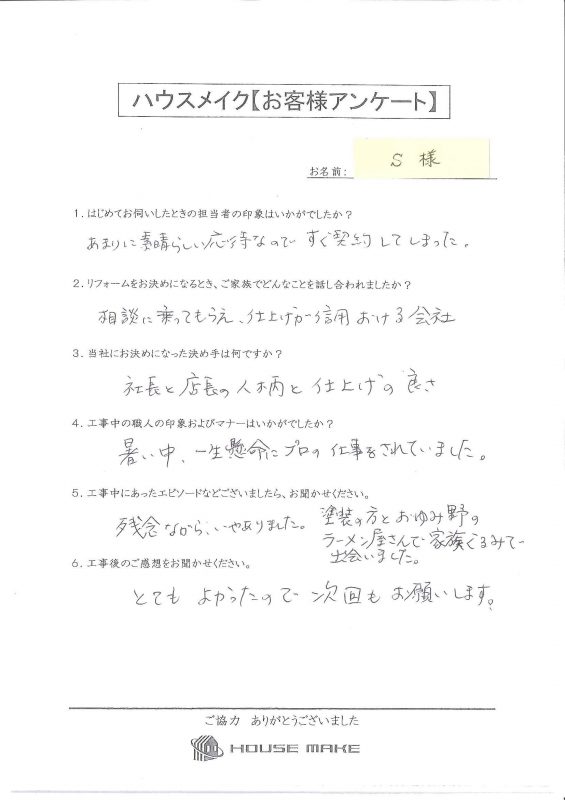 ハウスメイク【お客様アンケート】
お名前: S 様
1. はじめてお伺いしたときの担当者の印象はいかがでしたか？
あまりに素晴らしい応待なのですぐ契約してしまった。
2. リフォームをお決めになるとき、ご家族でどんなことを話し合われましたか？
相談に乗ってもらえ、仕上げが信用おける会社
3. 当社にお決めになった決め手は何ですか？
社長と店長の人柄と仕上げの良さ
4. 工事中の職人の印象およびマナーはいかがでしたか？
暑い中、一生懸命にプロの仕事をされていました。
5. 工事中にあったエピソードなどございましたら、お聞かせください。
残念ながら、いやありました。
塗装の方とおゆみ野の
ラーメン屋さんで家族ぐるみで
出会いました。
6. 工事後のご感想をお聞かせください。
とても よかったので 次回も お願いします。
ご協力 ありがとうございました
HOUSE MAKE